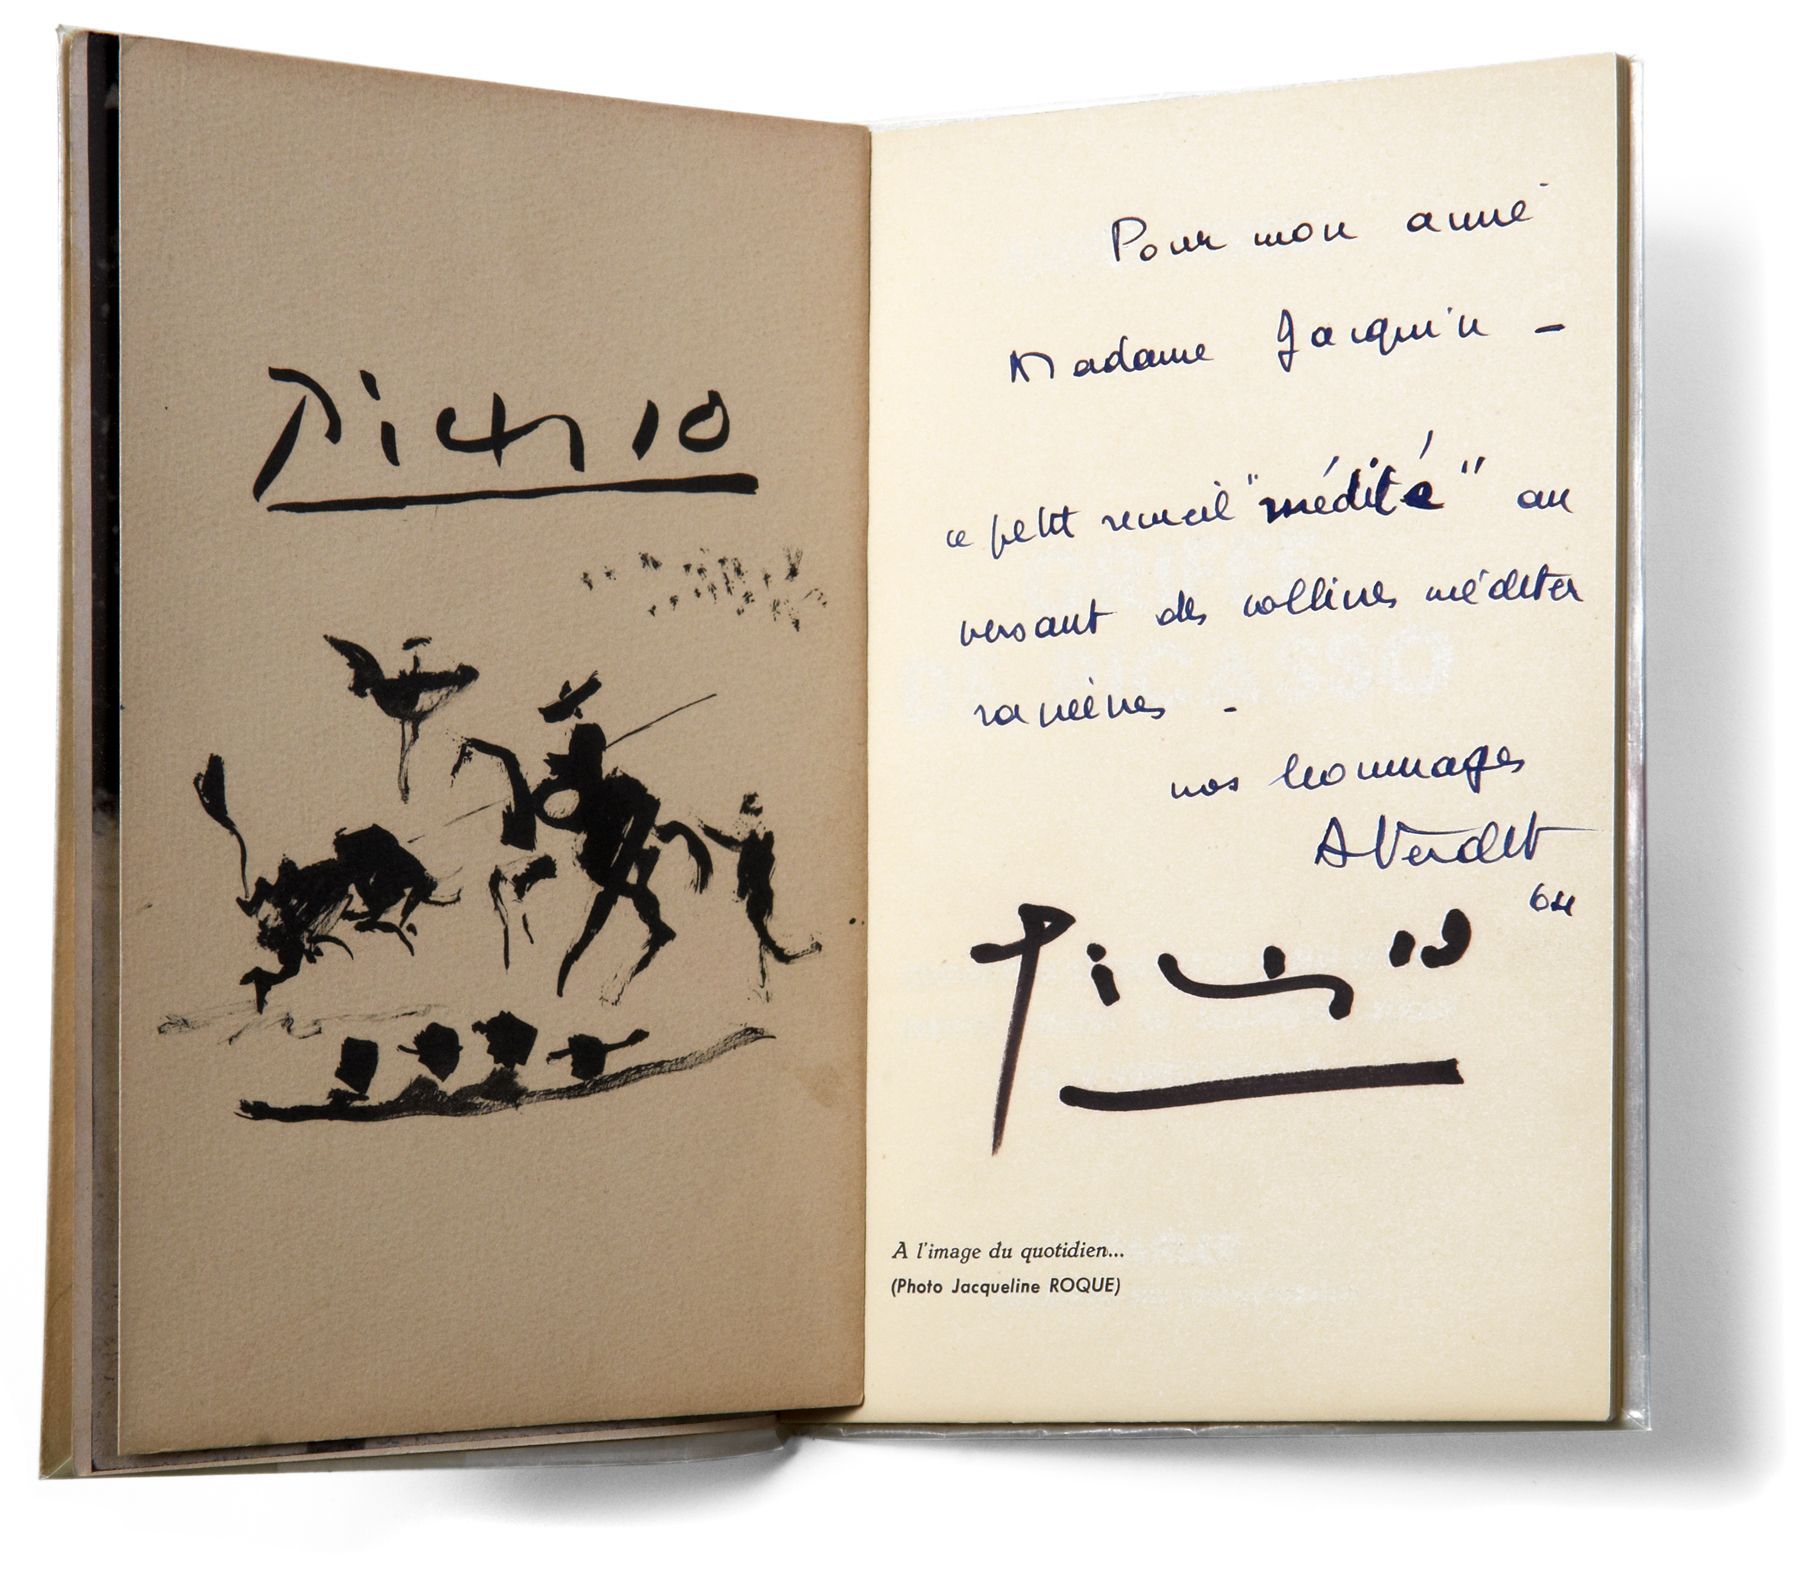 Picasso
Pour mon amie
Madame Jacquin -
ce petit recueil "médité" au
versant des collines méditer
ranéènes -
mes hommages
A Verdet
64
Picasso
A l'image du quotidien...
(Photo Jacqueline ROQUE)